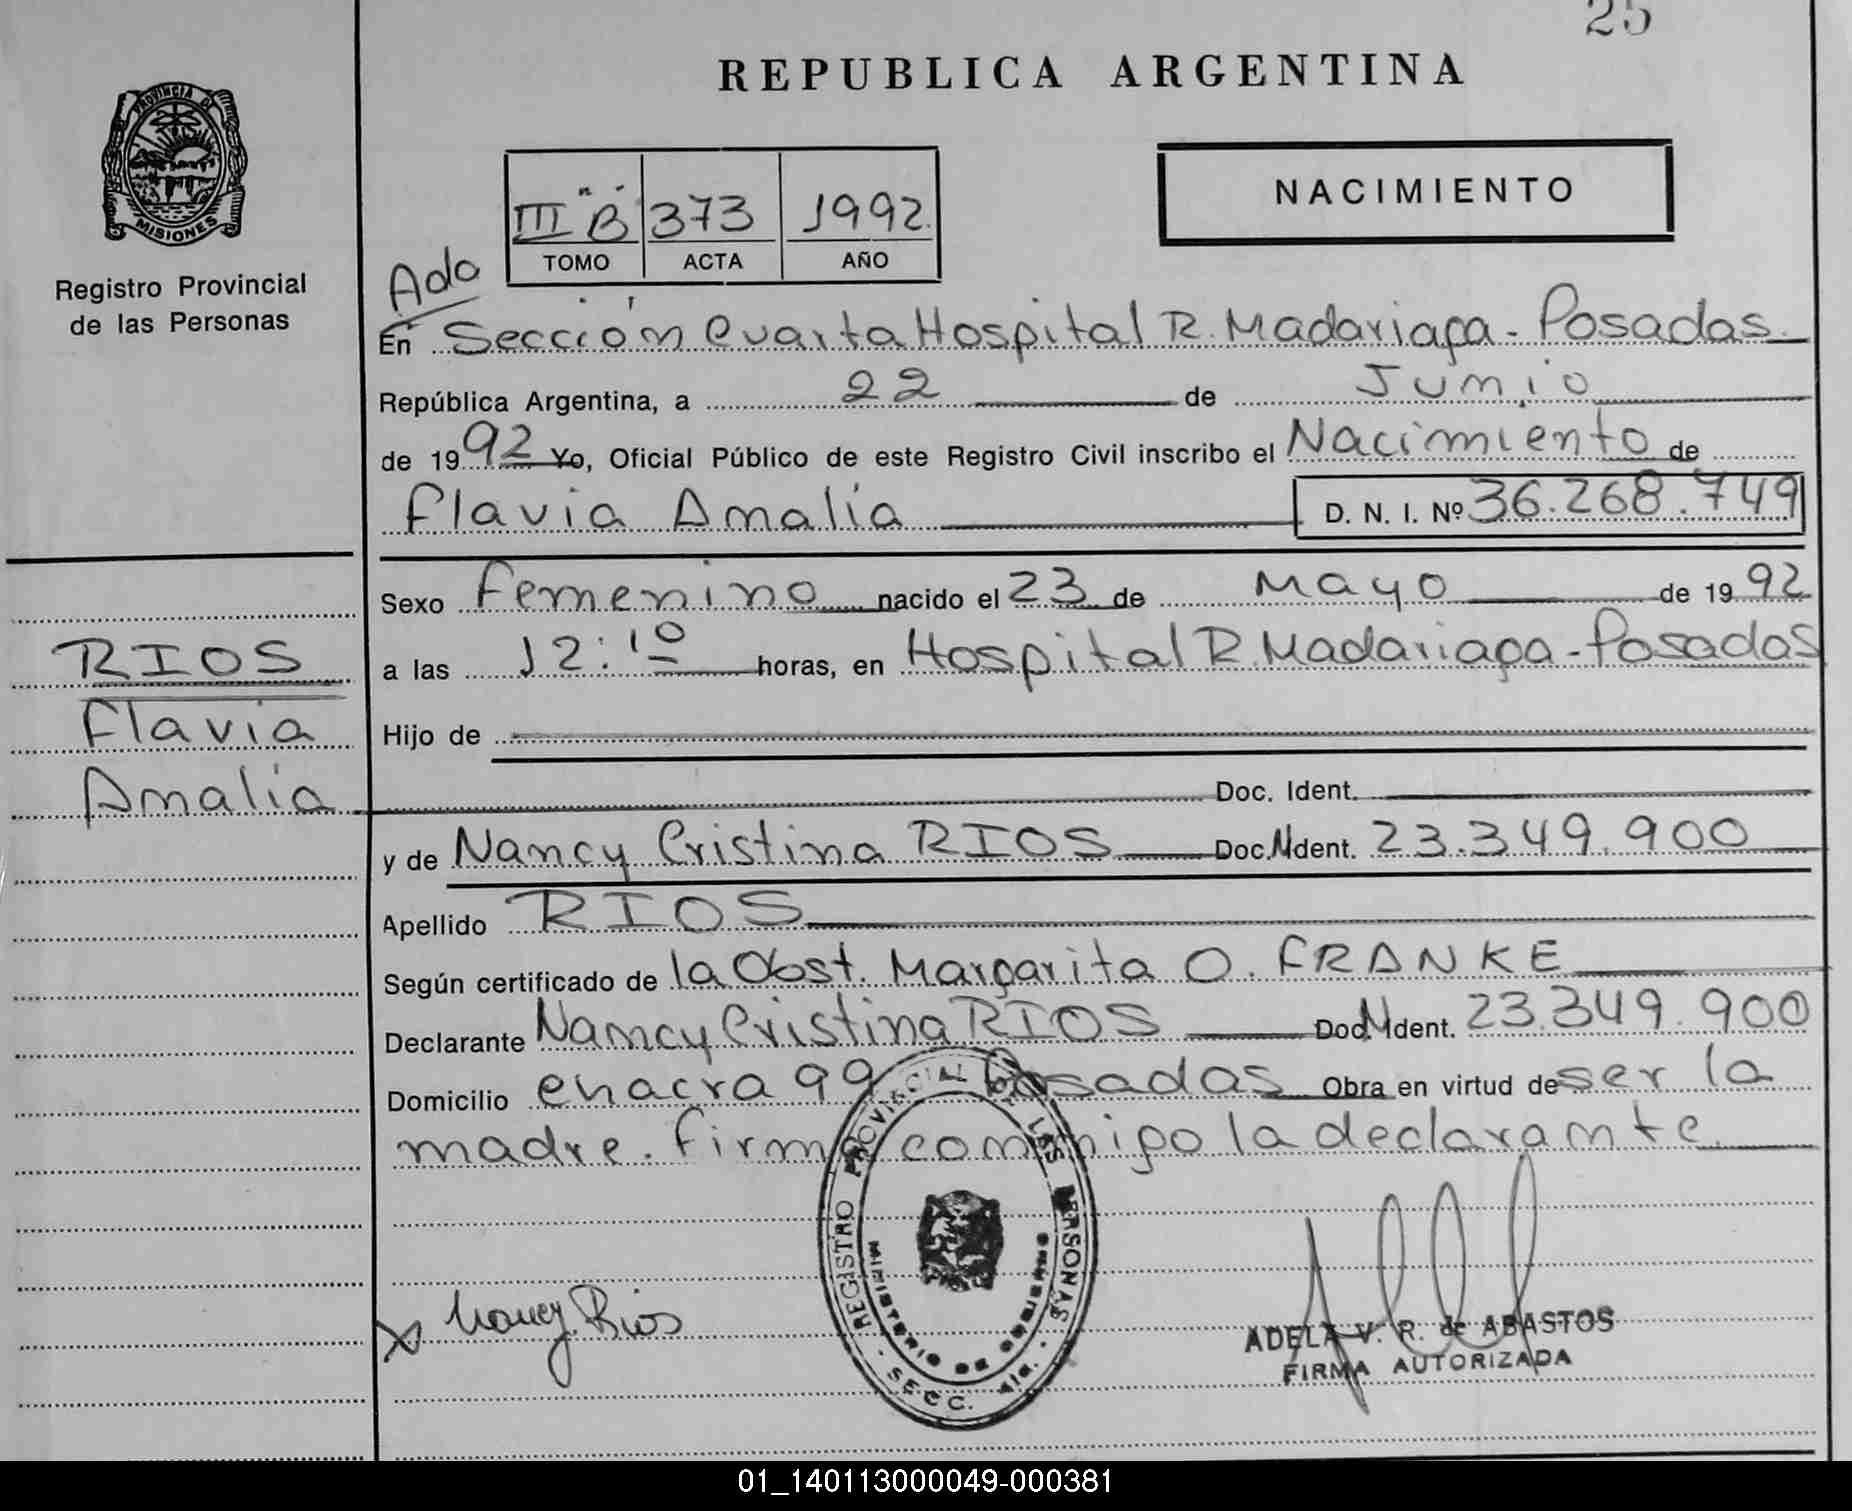 25
REPUBLICA ARGENTINA
PROVINCIA DE
MISIONES
Registro Provincial
de las Personas
NACIMIENTO
III "B" 373 1992.
TOMO ACTA AÑO
Ada
En Sección Cuarta Hospital R. Madariaga - Posadas.
República Argentina, a 22 de Junio
de 1992 Yo, Oficial Público de este Registro Civil inscribo el Nacimiento de
Flavia Amalia D. N. I. Nº 36.268.749
Sexo Femenino nacido el 23 de Mayo de 1992
a las 12:10 horas, en Hospital R. Madariaga - Posadas
RIOS
Flavia
Amalia
Hijo de
Doc. Ident.
y de Nancy Cristina RIOS Doc.N Ident. 23.349.900
Apellido RIOS
Según certificado de la Obst. Margarita O. FRANKE
Declarante Nancy Cristina RIOS Doc.N Ident. 23.349.900
Domicilio chacra 99 Posadas Obra en virtud de ser la
madre. Firma conmigo la declarante.
REGISTRO PROVINCIAL DE LAS PERSONAS
MINISTERIO DE GOBIERNO
SECC. 4ta.
X Nancy Rios
ADELA V. R. de ABASTOS
FIRMA AUTORIZADA
01_140113000049-000381